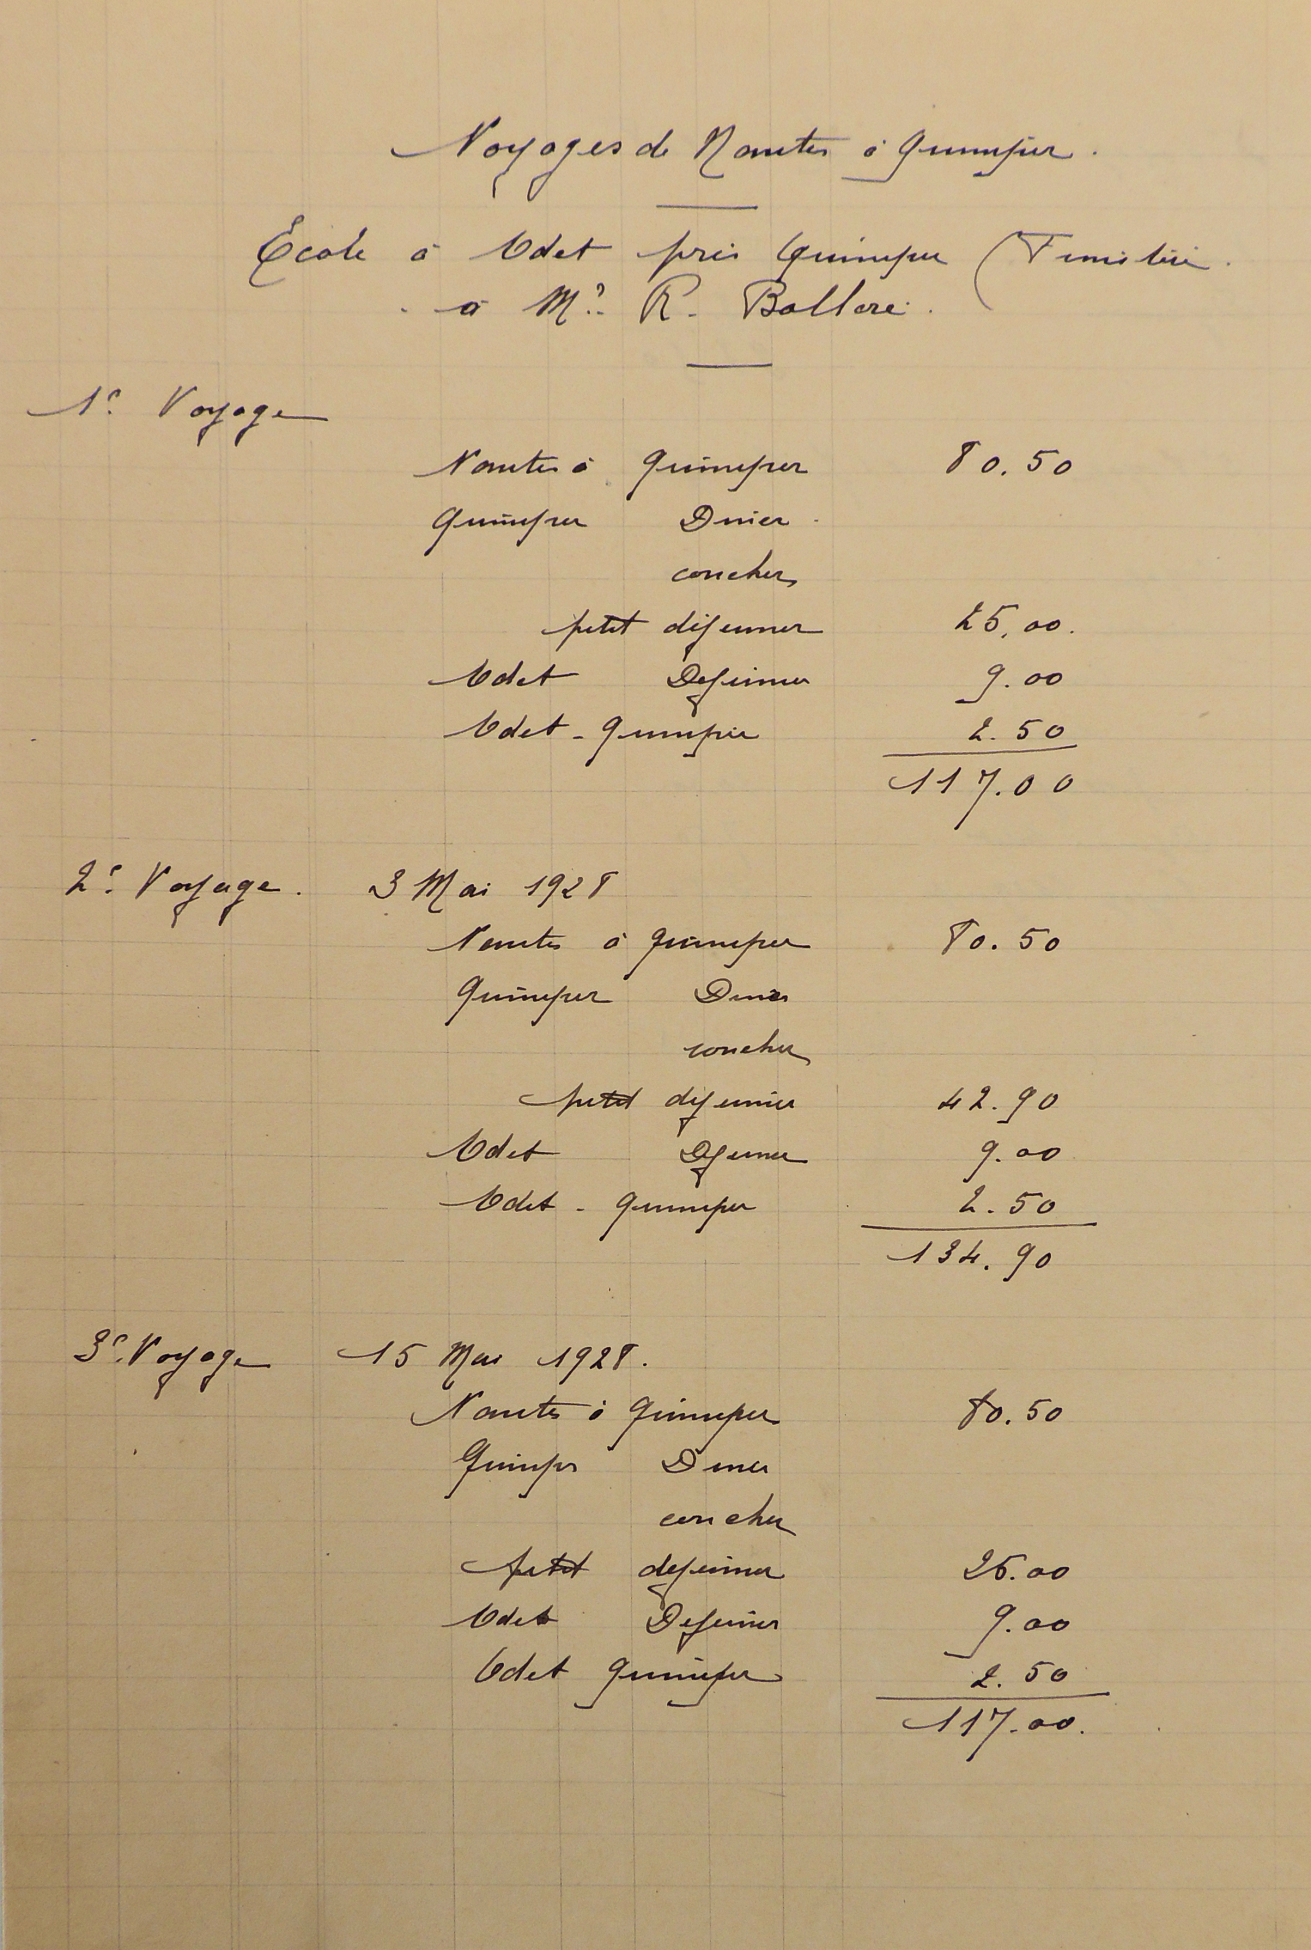 Voyages de Nantes à Quimper.
École à Odet près Quimper (Finistère.
à Mr. R. Bolloré.
1e. Voyage
Nantes à Quimper 80.50
Quimper Diner
coucher
petit déjeuner 25,00.
Odet Dejeuner 9.00
Odet - Quimper 2.50
117.00
2e. Voyage. 3 Mai 1928
Nantes à Quimper 80.50
Quimper Diner
coucher
petit dejeuner 42.90
Odet Dejeuner 9.00
Odet - Quimper 2.50
134.90
3e. Voyage 15 Mai 1928.
Nantes à Quimper 80.50
Quimper Diner
coucher
petit dejeuner 25.00
Odet Dejeuner 9.00
Odet Quimper 2.50
117.00.